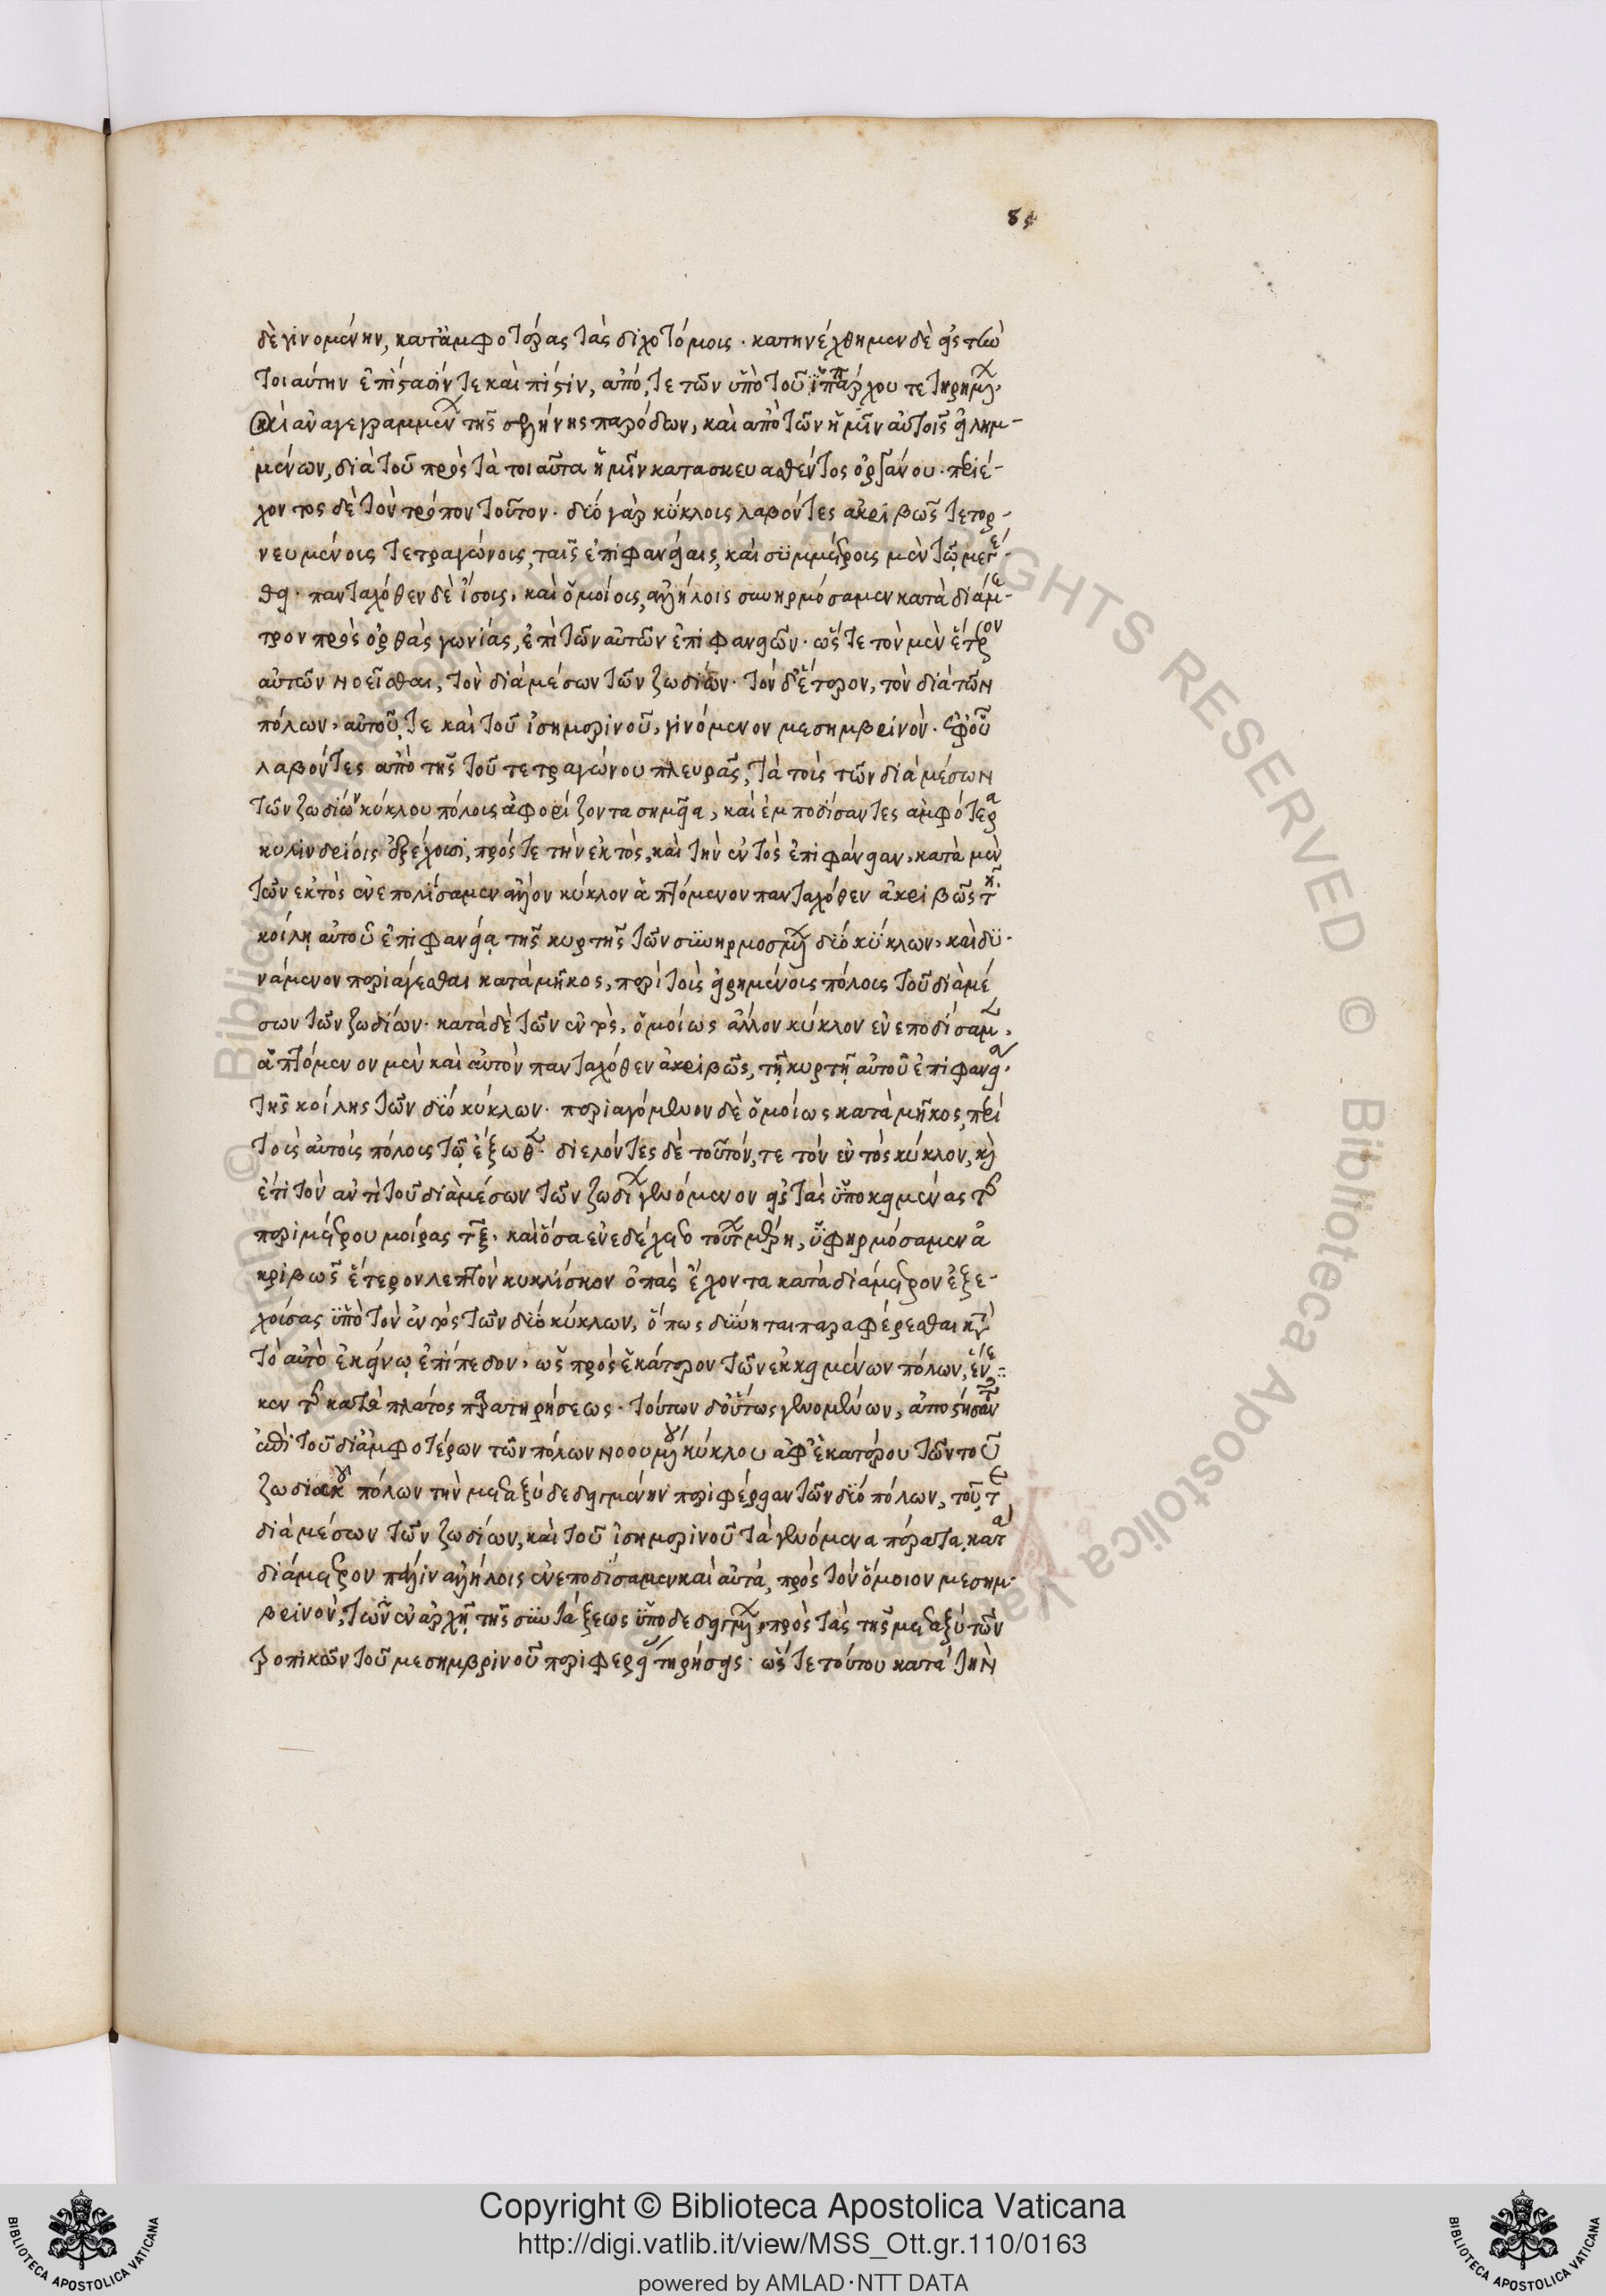 δὲ γινομένην, κατ' ἀμφοτέρας τὰς διχοτόμοις. κατηνέχθημεν δὲ εἰς τὴν
τοιαύτην ἐπίστασίν τε καὶ πίστιν, ἀπό, τε τῶν ὑπὸ τοῦ ἱππάρχου τετηρημ
καὶ ἀναγεγραμμέν τῆς σελήνης παρόδων, καὶ ἀπὸ τῶν ἡμῖν αὐτοῖς εἰλημ-
μένων, διὰ τοῦ πρὸς τὰ τοιαῦτα ἡμῖν κατασκευασθέντος ὀργάνου. περιέ-
χοντος δὲ τὸν τρόπον τοῦτον. δύο γὰρ κύκλοις λαβόντες ἀκριβῶς τετορ-
νευμένοις τετραγώνοις, ταῖς ἐπιφανείαις, καὶ συμμέτροις μὲν τῷ μεγέ-
θει. πανταχόθεν δὲ ἴσοις, καὶ ὁμοίοις, ἀλλήλοις συνηρμόσαμεν κατὰ διάμε-
τρον πρὸς ὀρθὰς γωνίας, ἐπὶ τῶν αὐτῶν ἐπιφανειῶν. ὥστε τὸν μὲν ἕτερον
αὐτῶν νοεῖσθαι, τὸν διὰ μέσων τῶν ζωδίων. τὸν δ' ἕτερον, τὸν διὰ τῶν
πόλων, αὐτοῦ, τε καὶ τοῦ ἰσημερινοῦ, γινόμενον μεσημβρινόν. ἐφ' οὗ
λαβόντες ἀπὸ τῆς τοῦ τετραγώνου πλευρᾶς, τὰ τοὶς τῶν διὰ μέσων
τῶν ζωδίων κύκλου πόλοις ἀφορίζοντα σημεῖα, καὶ ἐμποδίσαντες ἀμφότερα
κυλινδρίοις ἐξέχουσι, πρός τε τὴν ἐκτὸς, καὶ τὴν ἐντὸς ἐπιφάνειαν, κατὰ μὲν
τῶν ἐκτὸς ἐνεπολίσαμεν ἄλλον κύκλον ἁπτόμενον πανταχόθεν ἀκριβῶς τῇ
κοίλῃ αὐτοῦ ἐπιφανείᾳ τῆς κυρτῆς τῶν συνηρμοσμ δύο κύκλων, καὶ δυ-
νάμενον περιάγεσθαι κατὰ μῆκος, περὶ τοὶς εἰρημένοις πόλοις τοῦ διὰ μέ
σων τῶν ζωδίων. κατὰ δὲ τῶν ἐντὸς, ὁμοίως ἄλλον κύκλον ἐνεποδίσαμ,
ἁπτόμενον μὲν καὶ αὐτὸν πανταχόθεν ἀκριβῶς, τῇ κυρτῇ αὐτοῦ ἐπιφανεία
τῆς κοίλης τῶν δύο κύκλων. περιαγόμενον δὲ ὁμοίως κατὰ μῆκος, περὶ
τοὶς αὐτοὶς πόλοις τῷ ἔξωθ. διελόντες δὲ τοῦτόν, τε τὸν ἐντὸς κύκλον, καὶ
ἔτι τὸν ἀντὶ τοῦ διὰ μέσων τῶν ζωδι γινόμενον εἰς τὰς ὑποκειμένας τῆς
περιμέτρου μοίρας τξ. καὶ ὅσα ἐνεδέχετο τούτ μέρη, ὑφηρμόσαμεν ἀ
κριβῶς ἕτερον λεπτὸν κυκλίσκον ὀπὰς ἔχοντα κατὰ διάμετρον ἐξε-
χοίσας ὑπὸ τὸν ἐντὸς τῶν δύο κύκλων, ὅπως δύνηται παραφέρεσθαι κατὰ
τὸ αὐτὸ ἐκείνῳ ἐπίπεδον, ὡς πρὸς ἑκάτερον τῶν ἐκκειμένων πόλων, ἕνε
κεν τῆς κατὰ πλάτος παρατηρήσεως. τούτων δ' οὕτως γινομένων, ἀποστήσαντ
ἐπὶ τοῦ δι' ἀμφοτέρων τῶν πόλων νοουμ κύκλου ἀφ' ἑκατέρου τῶν τοῦ
ζωδιακοῦ πόλων τὴν μεταξὺ δεδειγμένην περιφέρειαν τῶν δύο πόλων, τοῦ τε
διὰ μέσων τῶν ζωδίων, καὶ τοῦ ἰσημερινοῦ τὰ γινόμενα πέρατα, κατὰ
διάμετρον πάλιν ἀλλήλοις ἐνεποδίσαμεν καὶ αὐτά, πρὸς τὸν ὅμοιον μεσημ-
βρινόν, τῶν ἐν ἀρχῇ τῆς συντάξεως ὑποδεδειγμ, πρὸς τὰς τῆς μεταξὺ τῶν
τροπικῶν τοῦ μεσημβρινοῦ περιφερεί τηρήσεις. ὥστε τούτου κατὰ τὴν
© Biblioteca Apostolica Vaticana ALL RIGHTS RESERVED © Biblioteca Apostolica Vaticana
Copyright © Biblioteca Apostolica Vaticana
http://digi.vatlib.it/view/MSS_Ott.gr.110/0163
powered by AMLAD·NTT DATA
BIBLIOTECA APOSTOLICA VATICANA
BIBLIOTECA APOSTOLICA VATICANA